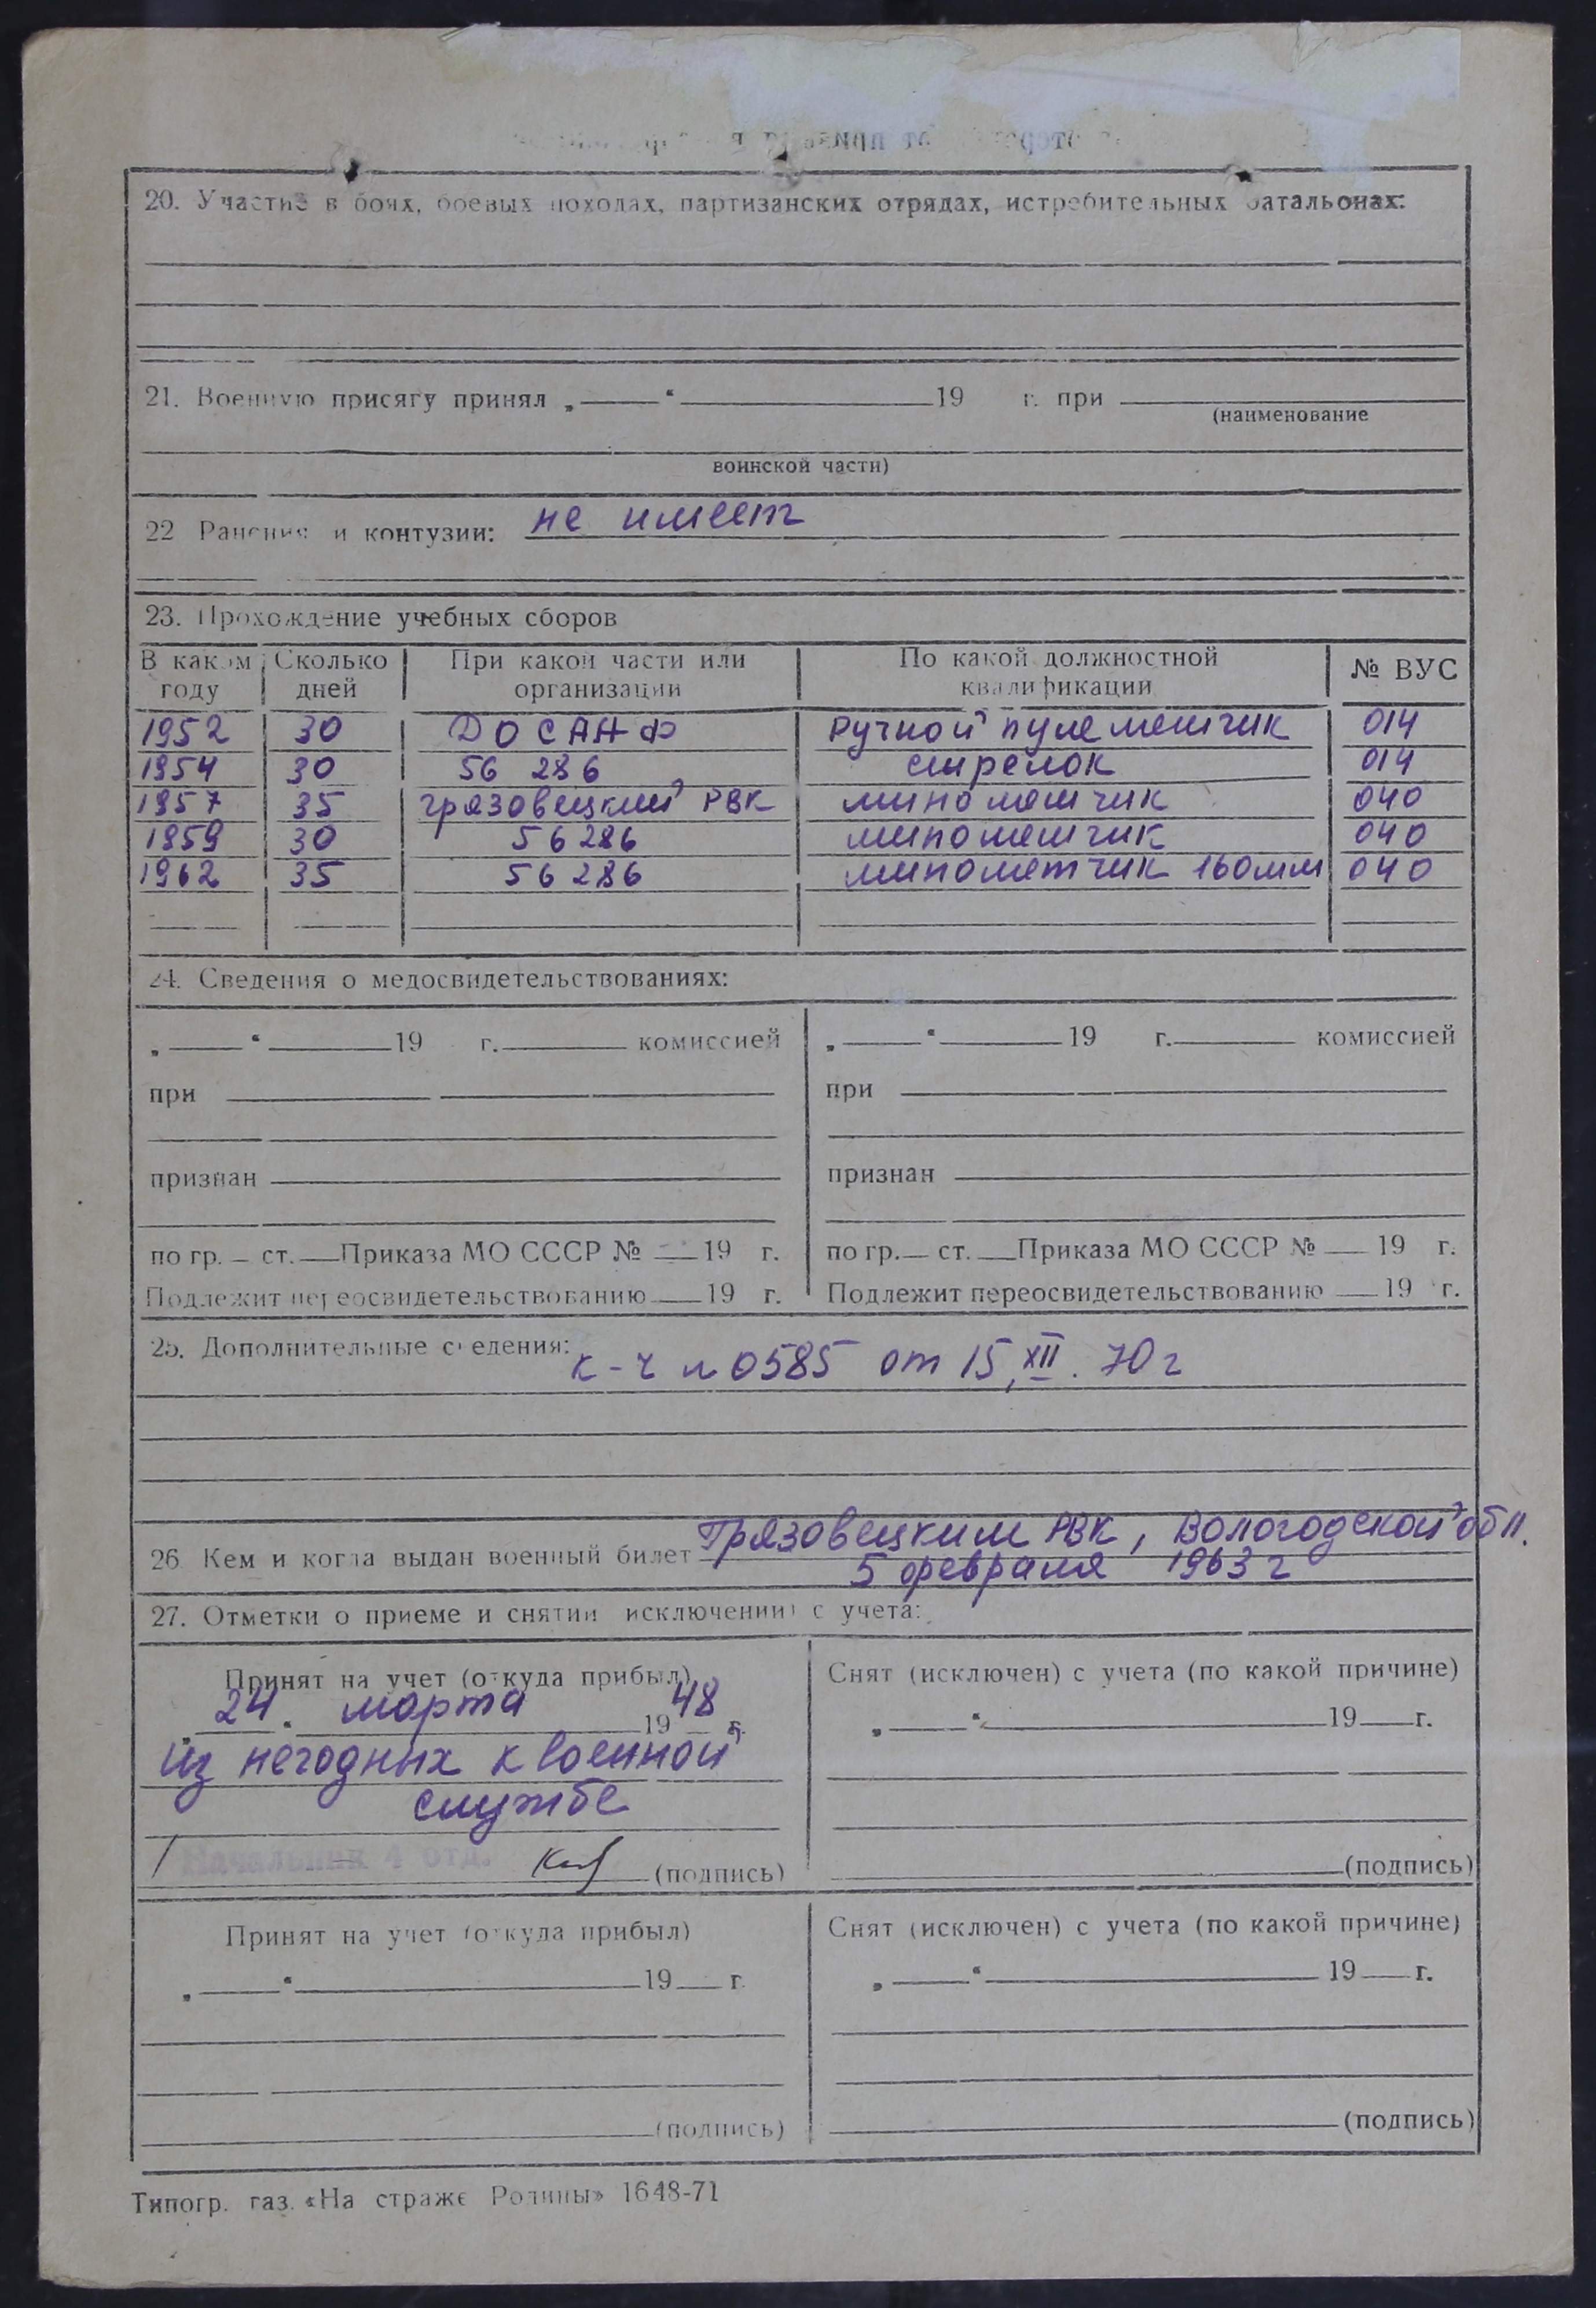 20. Участие в боях, боевых походах, партизанских отрядах, истребительных батальонах:
21. Военную присягу принял „ “ 19 г. при
(наименование
воинской части)
22 Ранения и контузии: не имеет
23. Прохождение учебных сборов
В каком году | Сколько дней | При какой части или организации | По какой должностной квалификации | № ВУС
1952 30 ДОСААФ Ручной пулеметчик 014
1954 30 56 286 стрелок 014
1957 35 Грязовецкий РВК минометчик 040
1959 30 56286 минометчик 040
1962 35 56286 минометчик 160мм 040
24. Сведения о медосвидетельствованиях:
„ “ 19 г. комиссией „ “ 19 г. комиссией
при при
признан признан
по гр. ст. Приказа МО СССР № 19 г. по гр. ст. Приказа МО СССР № 19 г.
Подлежит переосвидетельствованию 19 г. Подлежит переосвидетельствованию 19 г.
25. Дополнительные сведения: к-ч №0585 от 15, XII. 70г
26 Кем и когда выдан военный билет Грязовецким РВК, Вологодской обл.
5 февраля 1963 г
27. Отметки о приеме и снятии исключении) с учета:
Принят на учет (откуда прибыл) Снят (исключен) с учета (по какой причине)
„24“ марта 1948 г. „ “ 19 г.
из негодных к военной
службе
Начальник 4 отд. (подпись) (подпись)
Принят на учет (откуда прибыл) Снят (исключен) с учета (по какой причине)
„ “ 19 г. „ “ 19 г.
(подпись) (подпись)
Типогр. газ. «На страже Родины» 1648-71